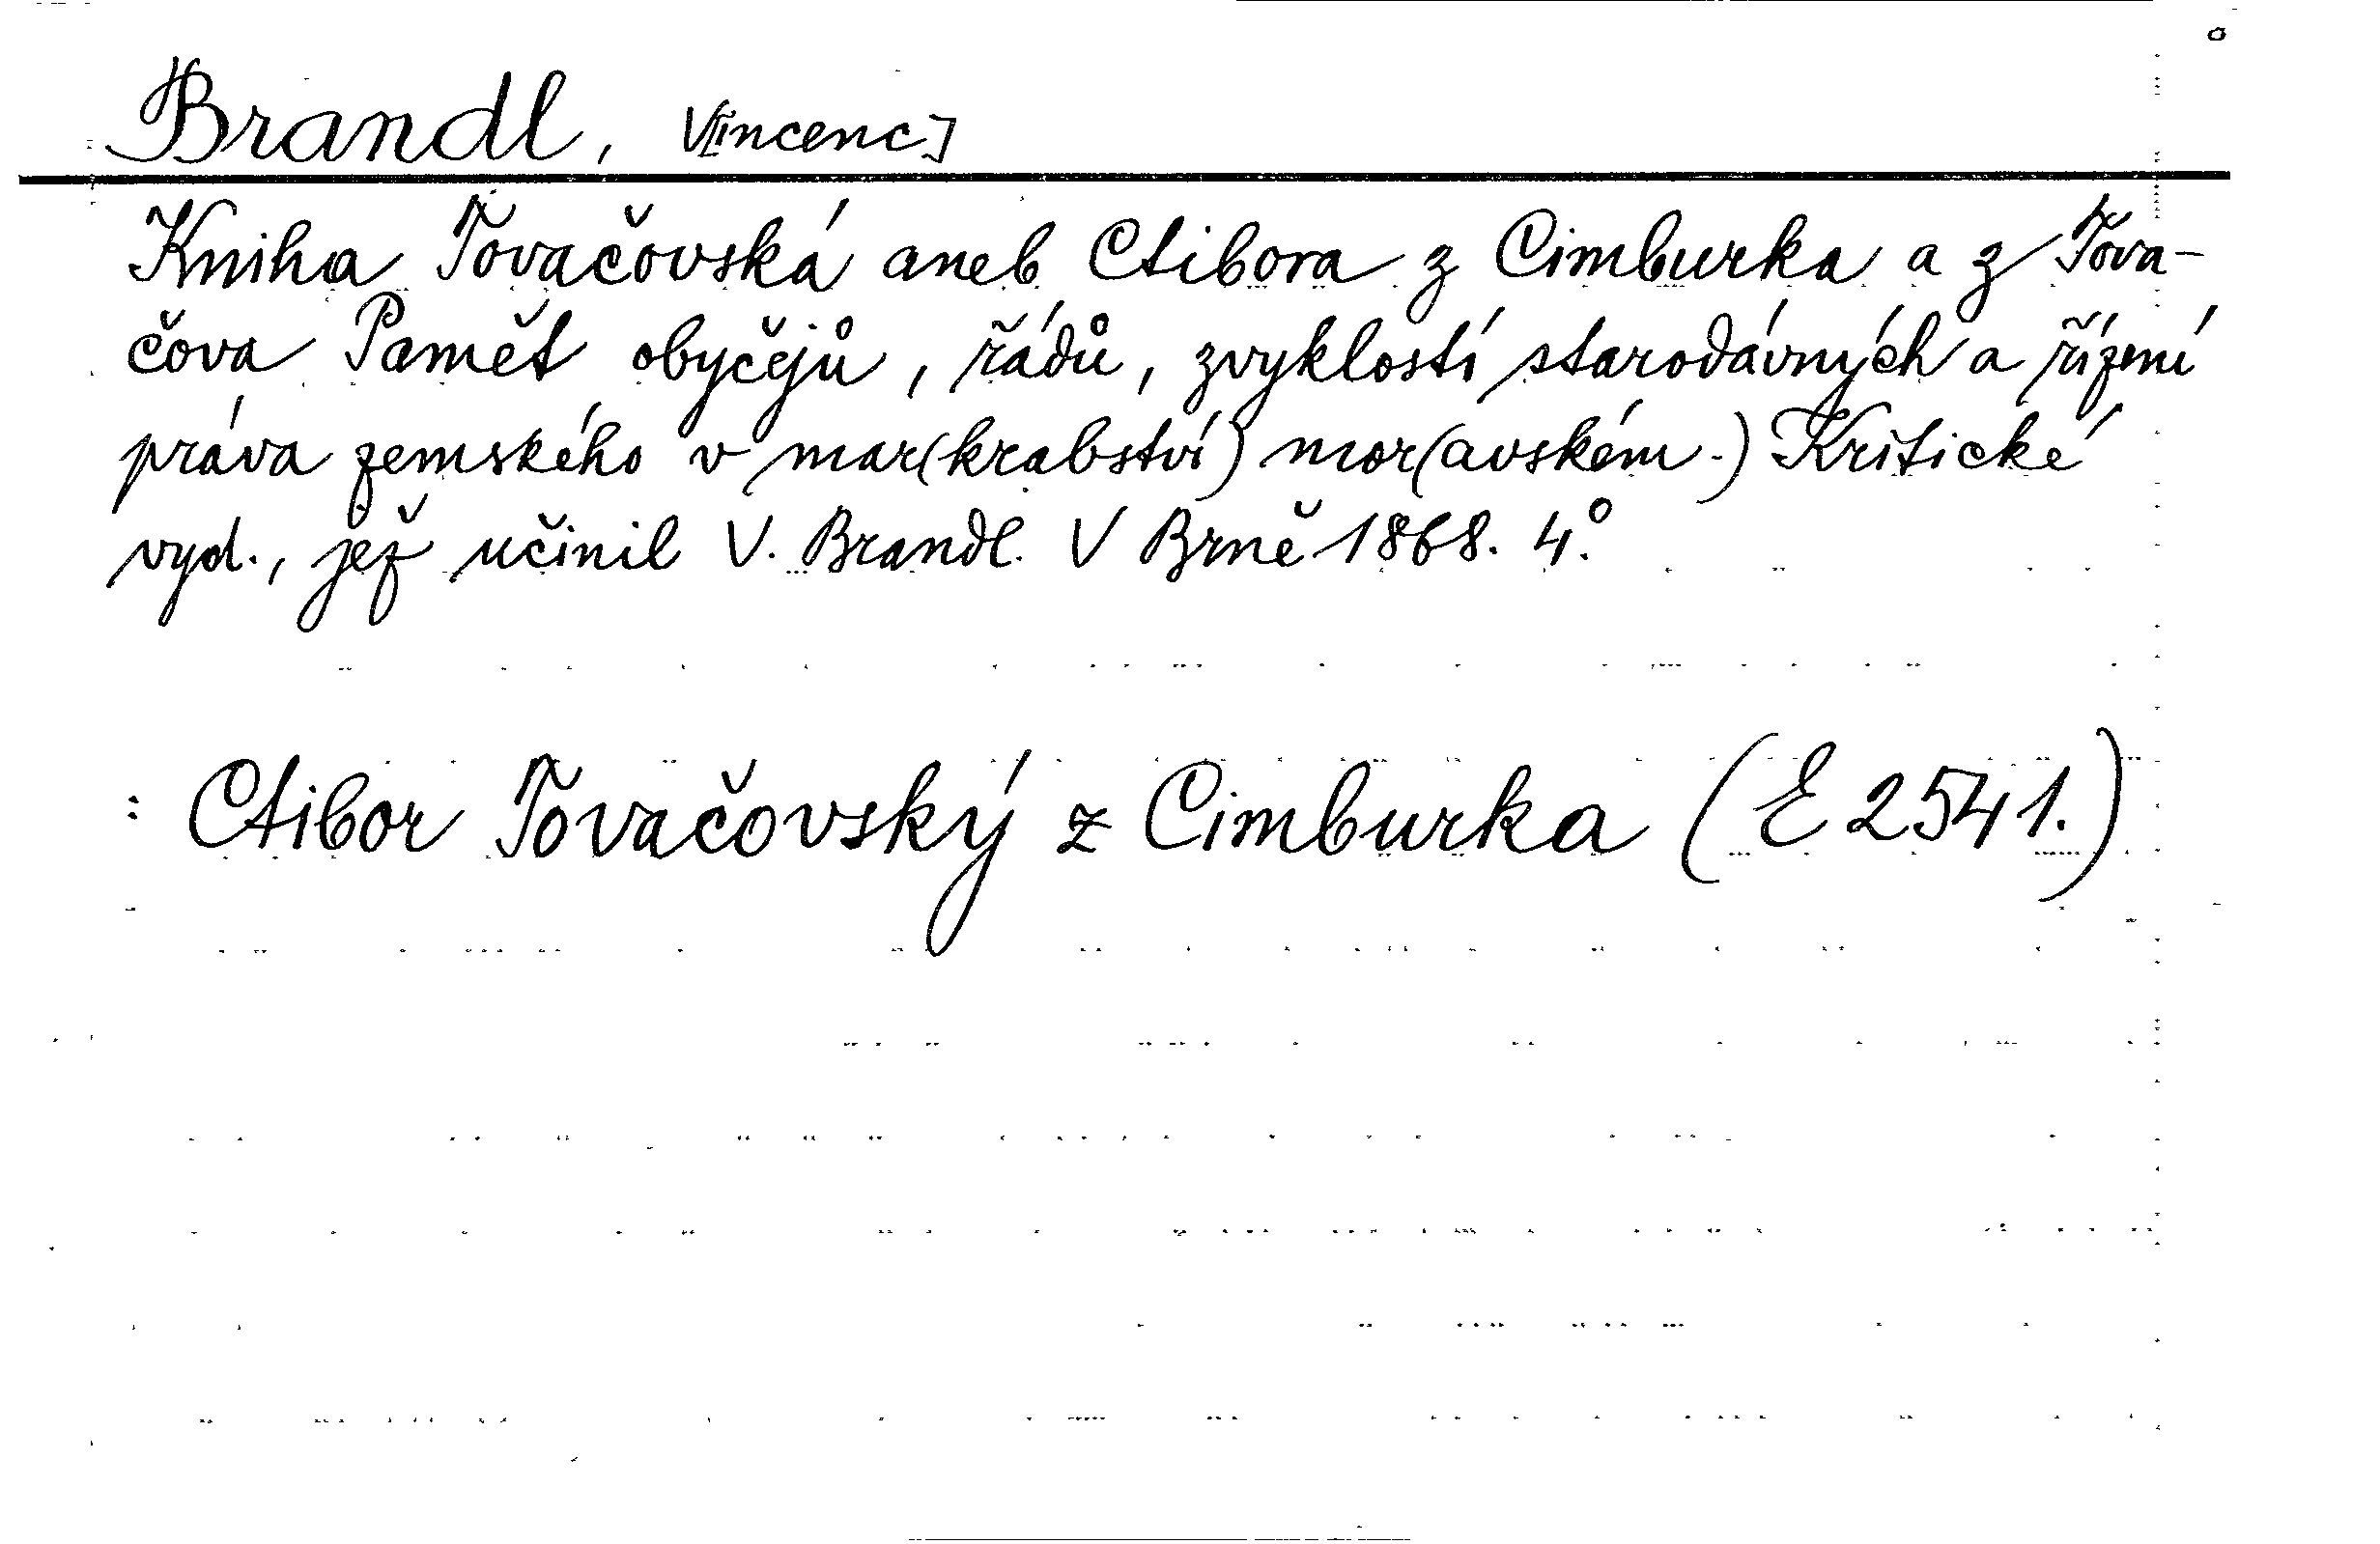 Brandl, V[incenc]
Kniha Tovačovská aneb Ctibora z Cimburka a z Tova-
čova Pamět obyčejů, řádů, zvyklostí starodávných a řízení
práva zemského v mar(krabství) mor(avském.) Kritické
vyd., jež učinil V. Brandl. V Brně 1868. 4.°
: Ctibor Tovačovský z Cimburka (E 2541.)